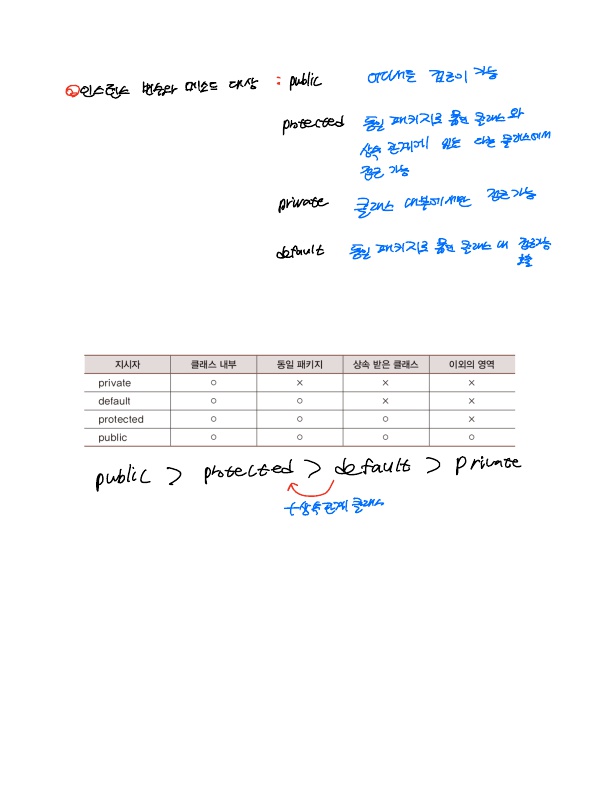 ② 인스턴스 변수와 메소드 대상 : public 어디서든 접근이 가능
protected 동일 패키지로 묶인 클래스와
상속 관계에 있는 다른 클래스에서
접근 가능
private 클래스 내부에서만 접근 가능
default 동일 패키지로 묶인 클래스 내 접근가능
지시자 클래스 내부 동일 패키지 상속 받은 클래스 이외의 영역
private ○ × × ×
default ○ ○ × ×
protected ○ ○ ○ ×
public ○ ○ ○ ○
public > protected > default > private
+상속관계 클래스